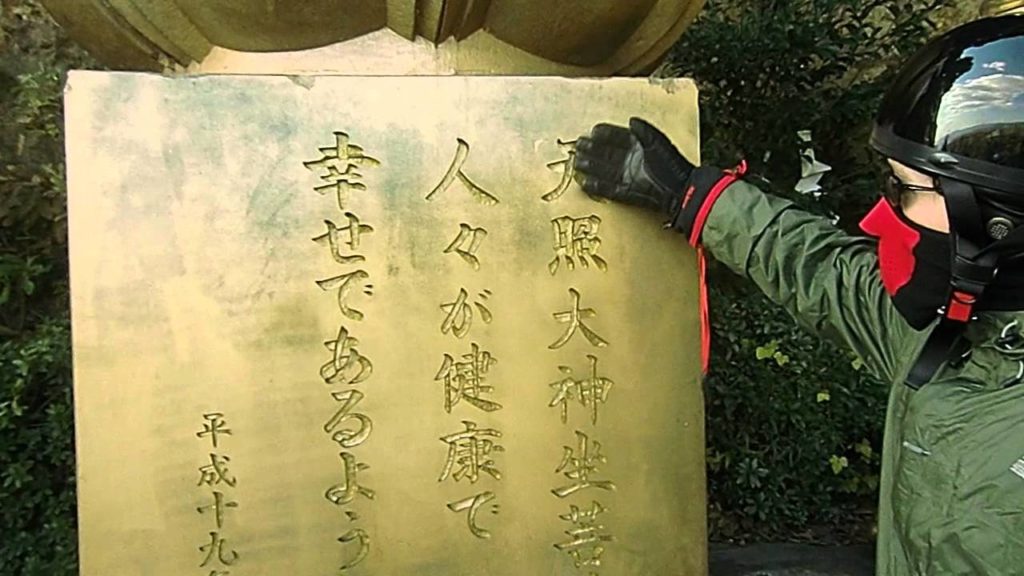 天照大神坐
人々が健康で
幸せであるよう
平成十九年